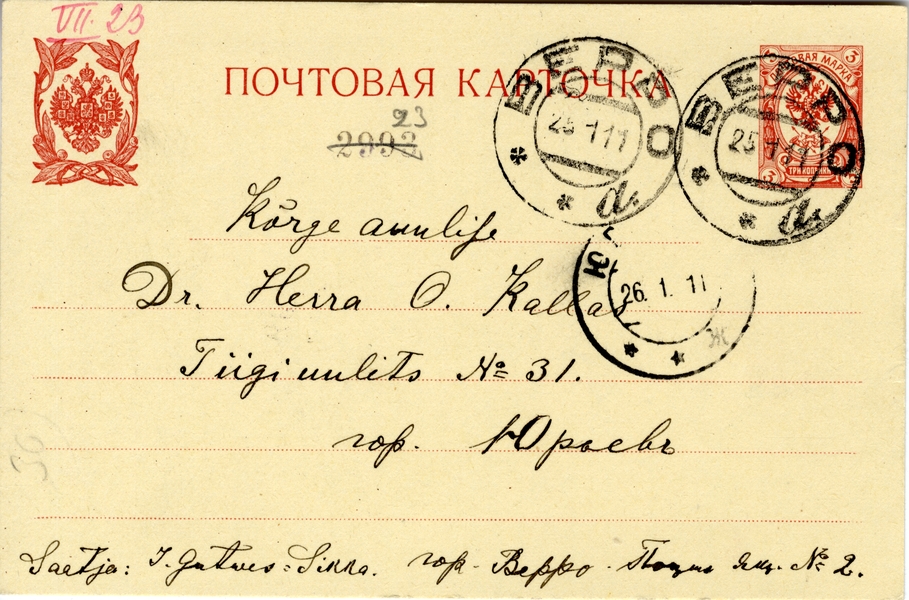 VII. 23
ПОЧТОВАЯ КАРТОЧКА
3
МАРКА
ТРИ КОПѢЙКИ
ВЕРРО
25 1 11
a.
ВЕРРО
25 1 11
a.
23
2992
Kõrge auulise
Dr. Herra O. Kallas
26. 1. 11
Ж
Tiigi uulits № 31.
гор. Юрьевъ
Saatja: J. Gutves=Sikka. гор. Верро. Почт. ящ. № 2.